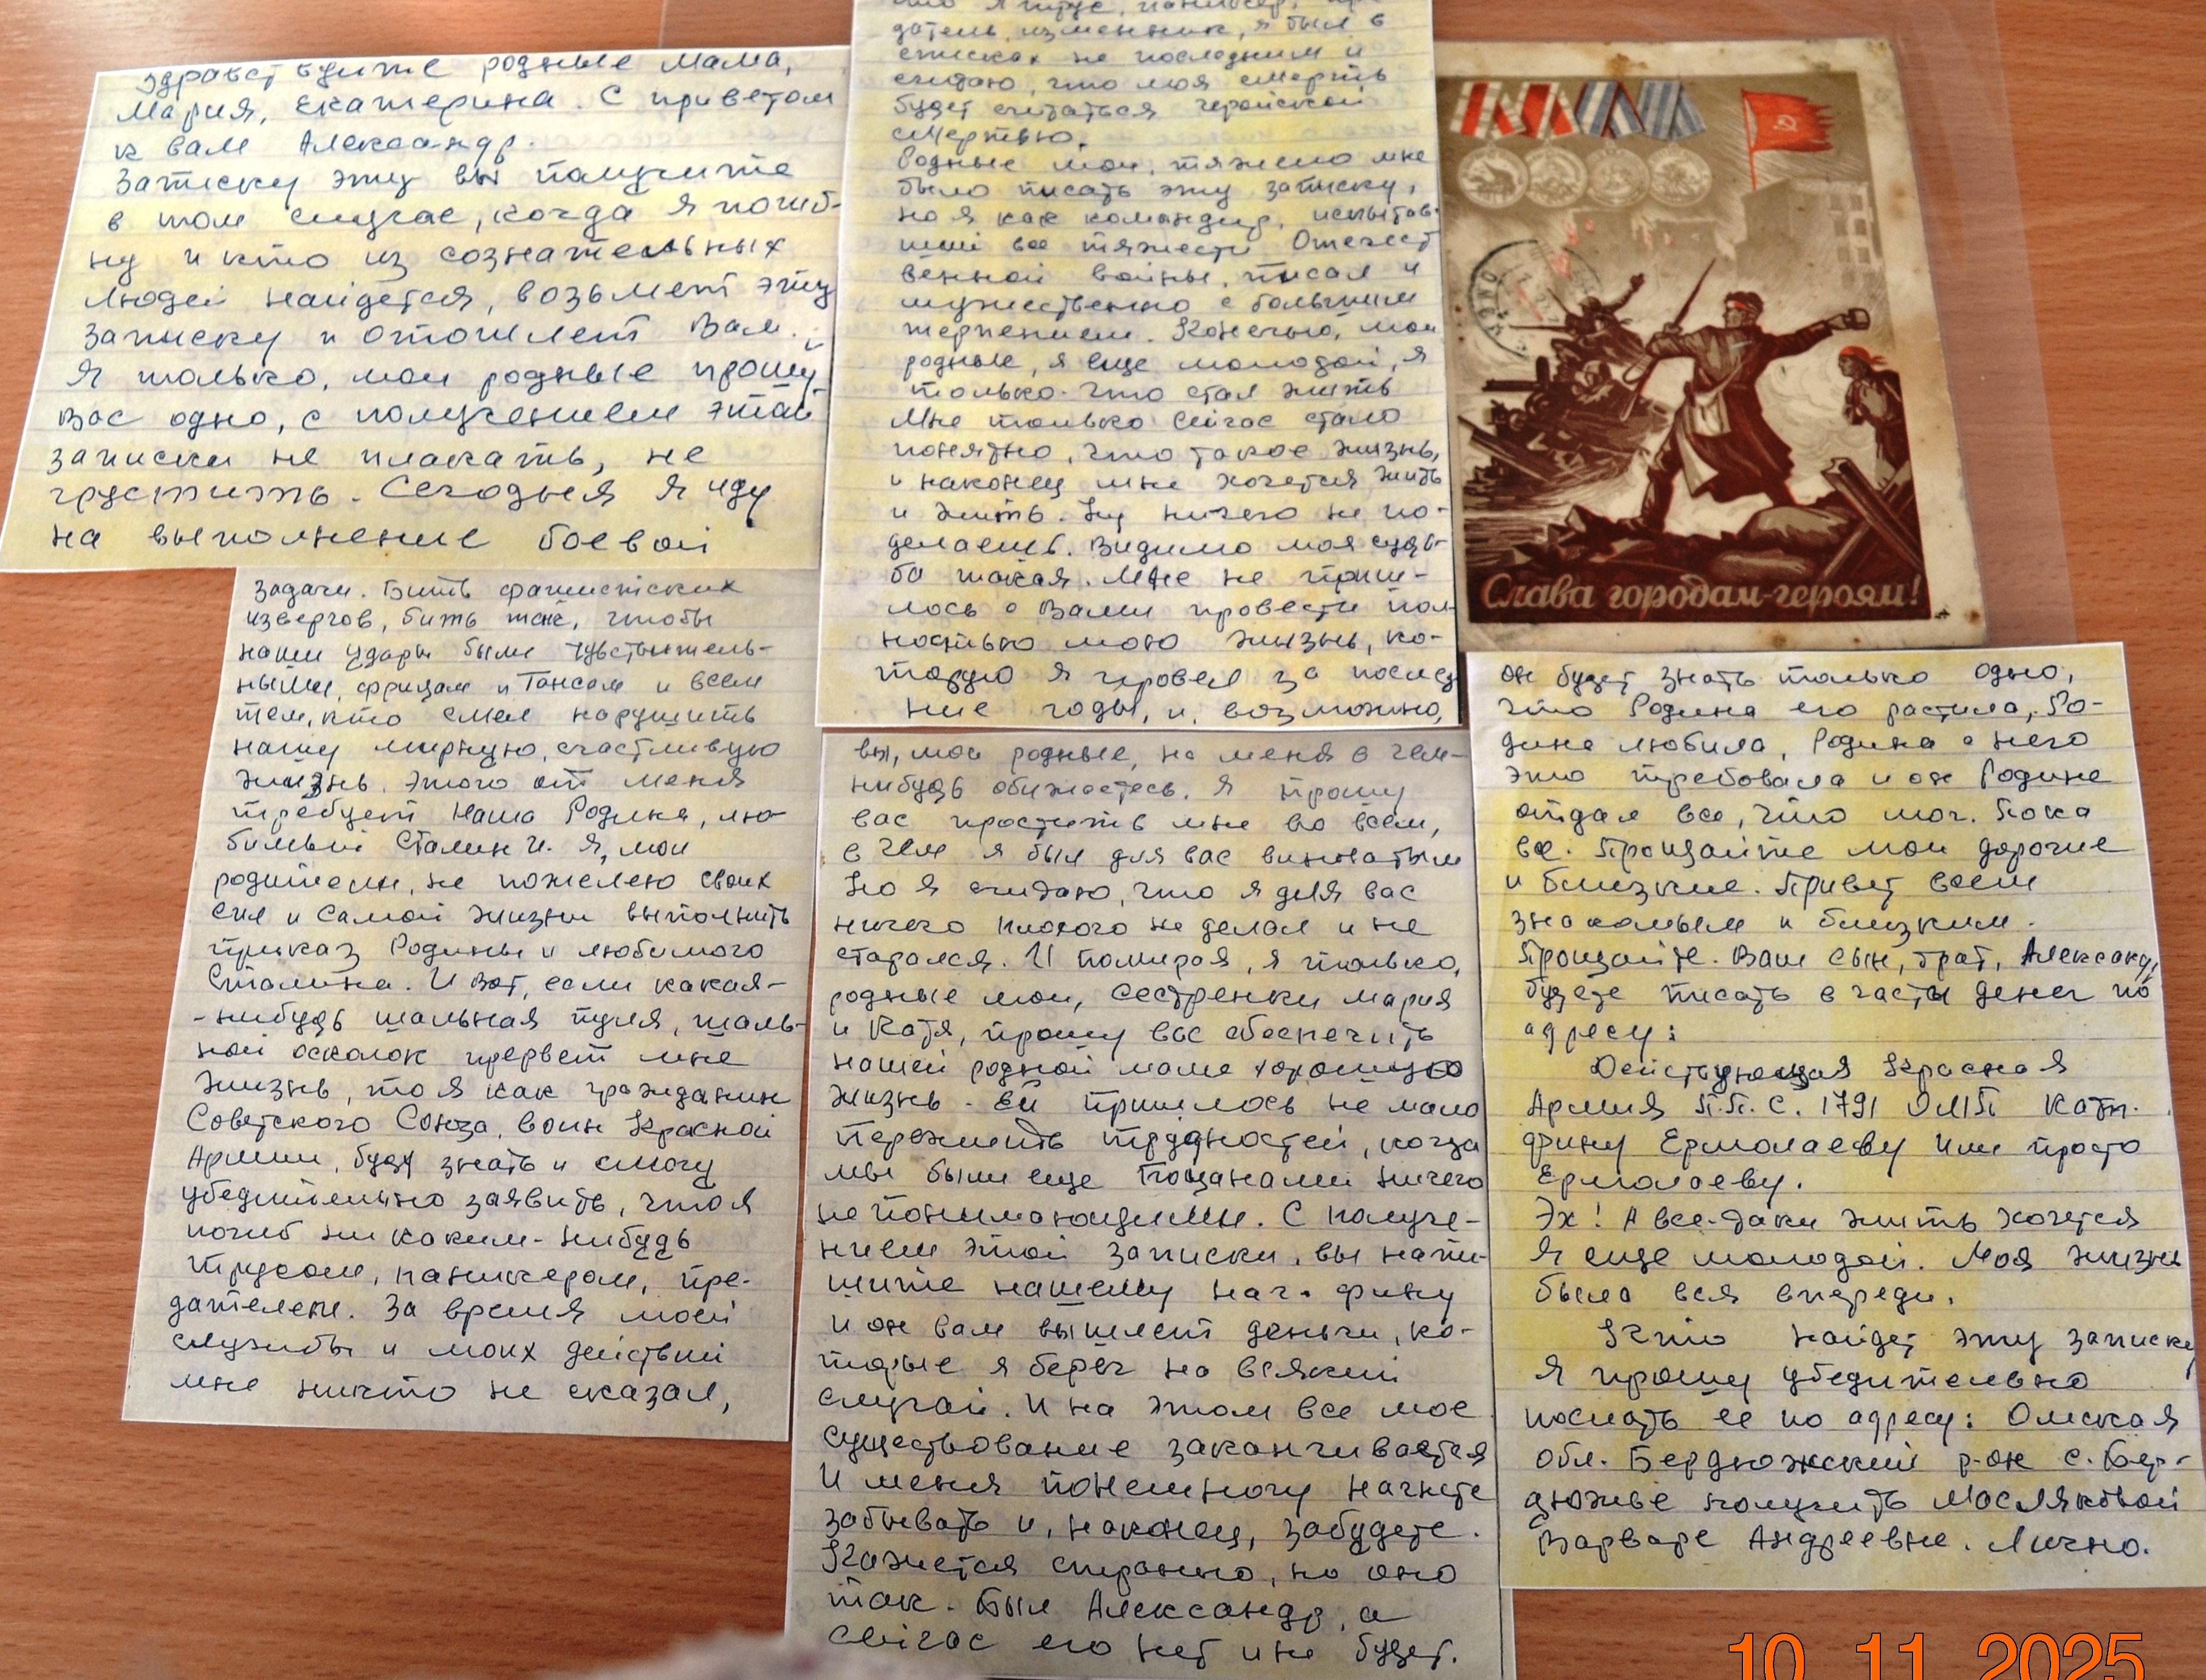 Здравствуйте родные Мама,
Мария, Екатерина. С приветом
к вам Александр.
Записку эту вы получите
в том случае, когда я погиб-
ну и кто из сознательных
людей найдется, возьмет эту
записку и отошлет Вам.
Я только, мои родные прошу
вас одно, с получением этой
записки не плакать, не
грустить. Сегодня я иду
на выполнение боевой
задачи. Бить фашистских
извергов, бить так, чтобы
наши удары были чувствитель-
ными, фрицам и Гансам и всем
тем, кто смел нарушить
нашу мирную, счастливую
жизнь. Этого от меня
требует наша Родина, лю-
бимый Сталин И. Я, мои
родители, не пожелею своих
сил и самой жизни выполнить
приказ Родины и любимого
Сталина. И вот, если какая-
-нибудь шальная пуля, шаль-
ной осколок прервет мне
жизнь, то я как гражданин
Советского Союза, воин Красной
Армии, буду знать и смогу
убедительно заявить, что я
погиб ни каким-нибудь
трусом, паникером, пре-
дателем. За время моей
службы и моих действий
мне никто не сказал,
что я трус, паникер, пре-
датель, изменник, я был в
списках не последним и
считаю, что моя смерть
будет считаться геройской
смертью.
Родные мои, тяжело мне
было писать эту записку,
но я как командир, испытав-
ший все тяжести Отечест
венной войны, писал и
мужественно с большим
терпением. Конечно, мои
родные, я еще молодой, я
только-что стал жить
Мне только сейчас стало
понятно, что такое жизнь,
и наконец мне хочется жить
и жить. Ну ничего не по-
делаешь. Видимо моя судь-
ба такая. Мне не приш-
лось с Вами провести пол-
ностью мою жизнь, ко-
торую я провел за послед
ние годы, и, возможно,
вы, мои родные, на меня в чем-
нибудь обижаетесь. Я прошу
вас простить мне во всем,
в чем я был для вас виноватым
Но я считаю, что я для вас
ничего плохого не делал и не
старался. И помирая, я только,
родные мои, сестренки Мария
и Катя, прошу вас обеспечить
нашей родной маме хорошую
жизнь. Ей пришлось не мало
пережить трудностей, когда
мы были еще пацанами ничего
не понимающими. С получе-
нием этой записки, вы напи-
шите нашему нач. фину
и он вам вышлет деньги, ко-
торые я берёг на всякий
случай. И на этом все мое
существование заканчивается
И меня понемногу начнете
забывать и, наконец, забудете.
Кажется странно, но оно
так. Был Александр, а
сейчас его нет и не будет.
Слава городам-героям!
он будет знать только одно,
что Родина его растила, Ро-
дина любила, Родина с него
это требовала и он Родине
отдал все, что мог. Пока
все. Прощайте мои дорогие
и близкие. Привет всем
знакомым и близким.
Прощайте. Ваш сын, брат, Александр,
будете писать в часть денег по
адресу:
Действующая Красная
Армия П.П.С. 1791 ОМПБ
фину Ермолаеву или просто
Ермолаеву.
Эх! А все-таки жить хочется
Я еще молодой. Моя жизнь
была вся впереди.
Кто найдет эту записку
Я прошу убедительно
послать ее по адресу: Омская
обл. Бердюжский р-он с. Бер-
дюжье получить Масляковой
Варваре Андреевне. Лично.
10 11 2025